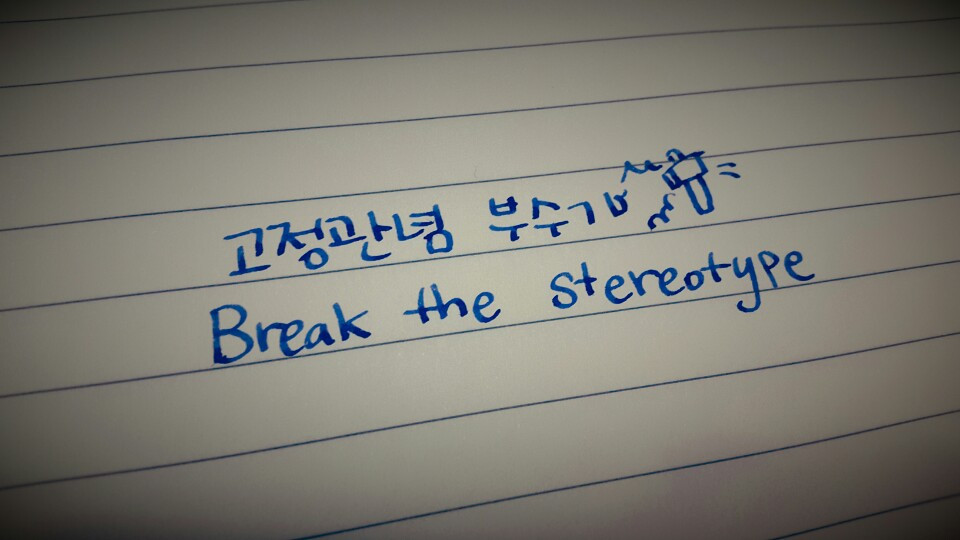 고정관념 부수기
Break the stereotype